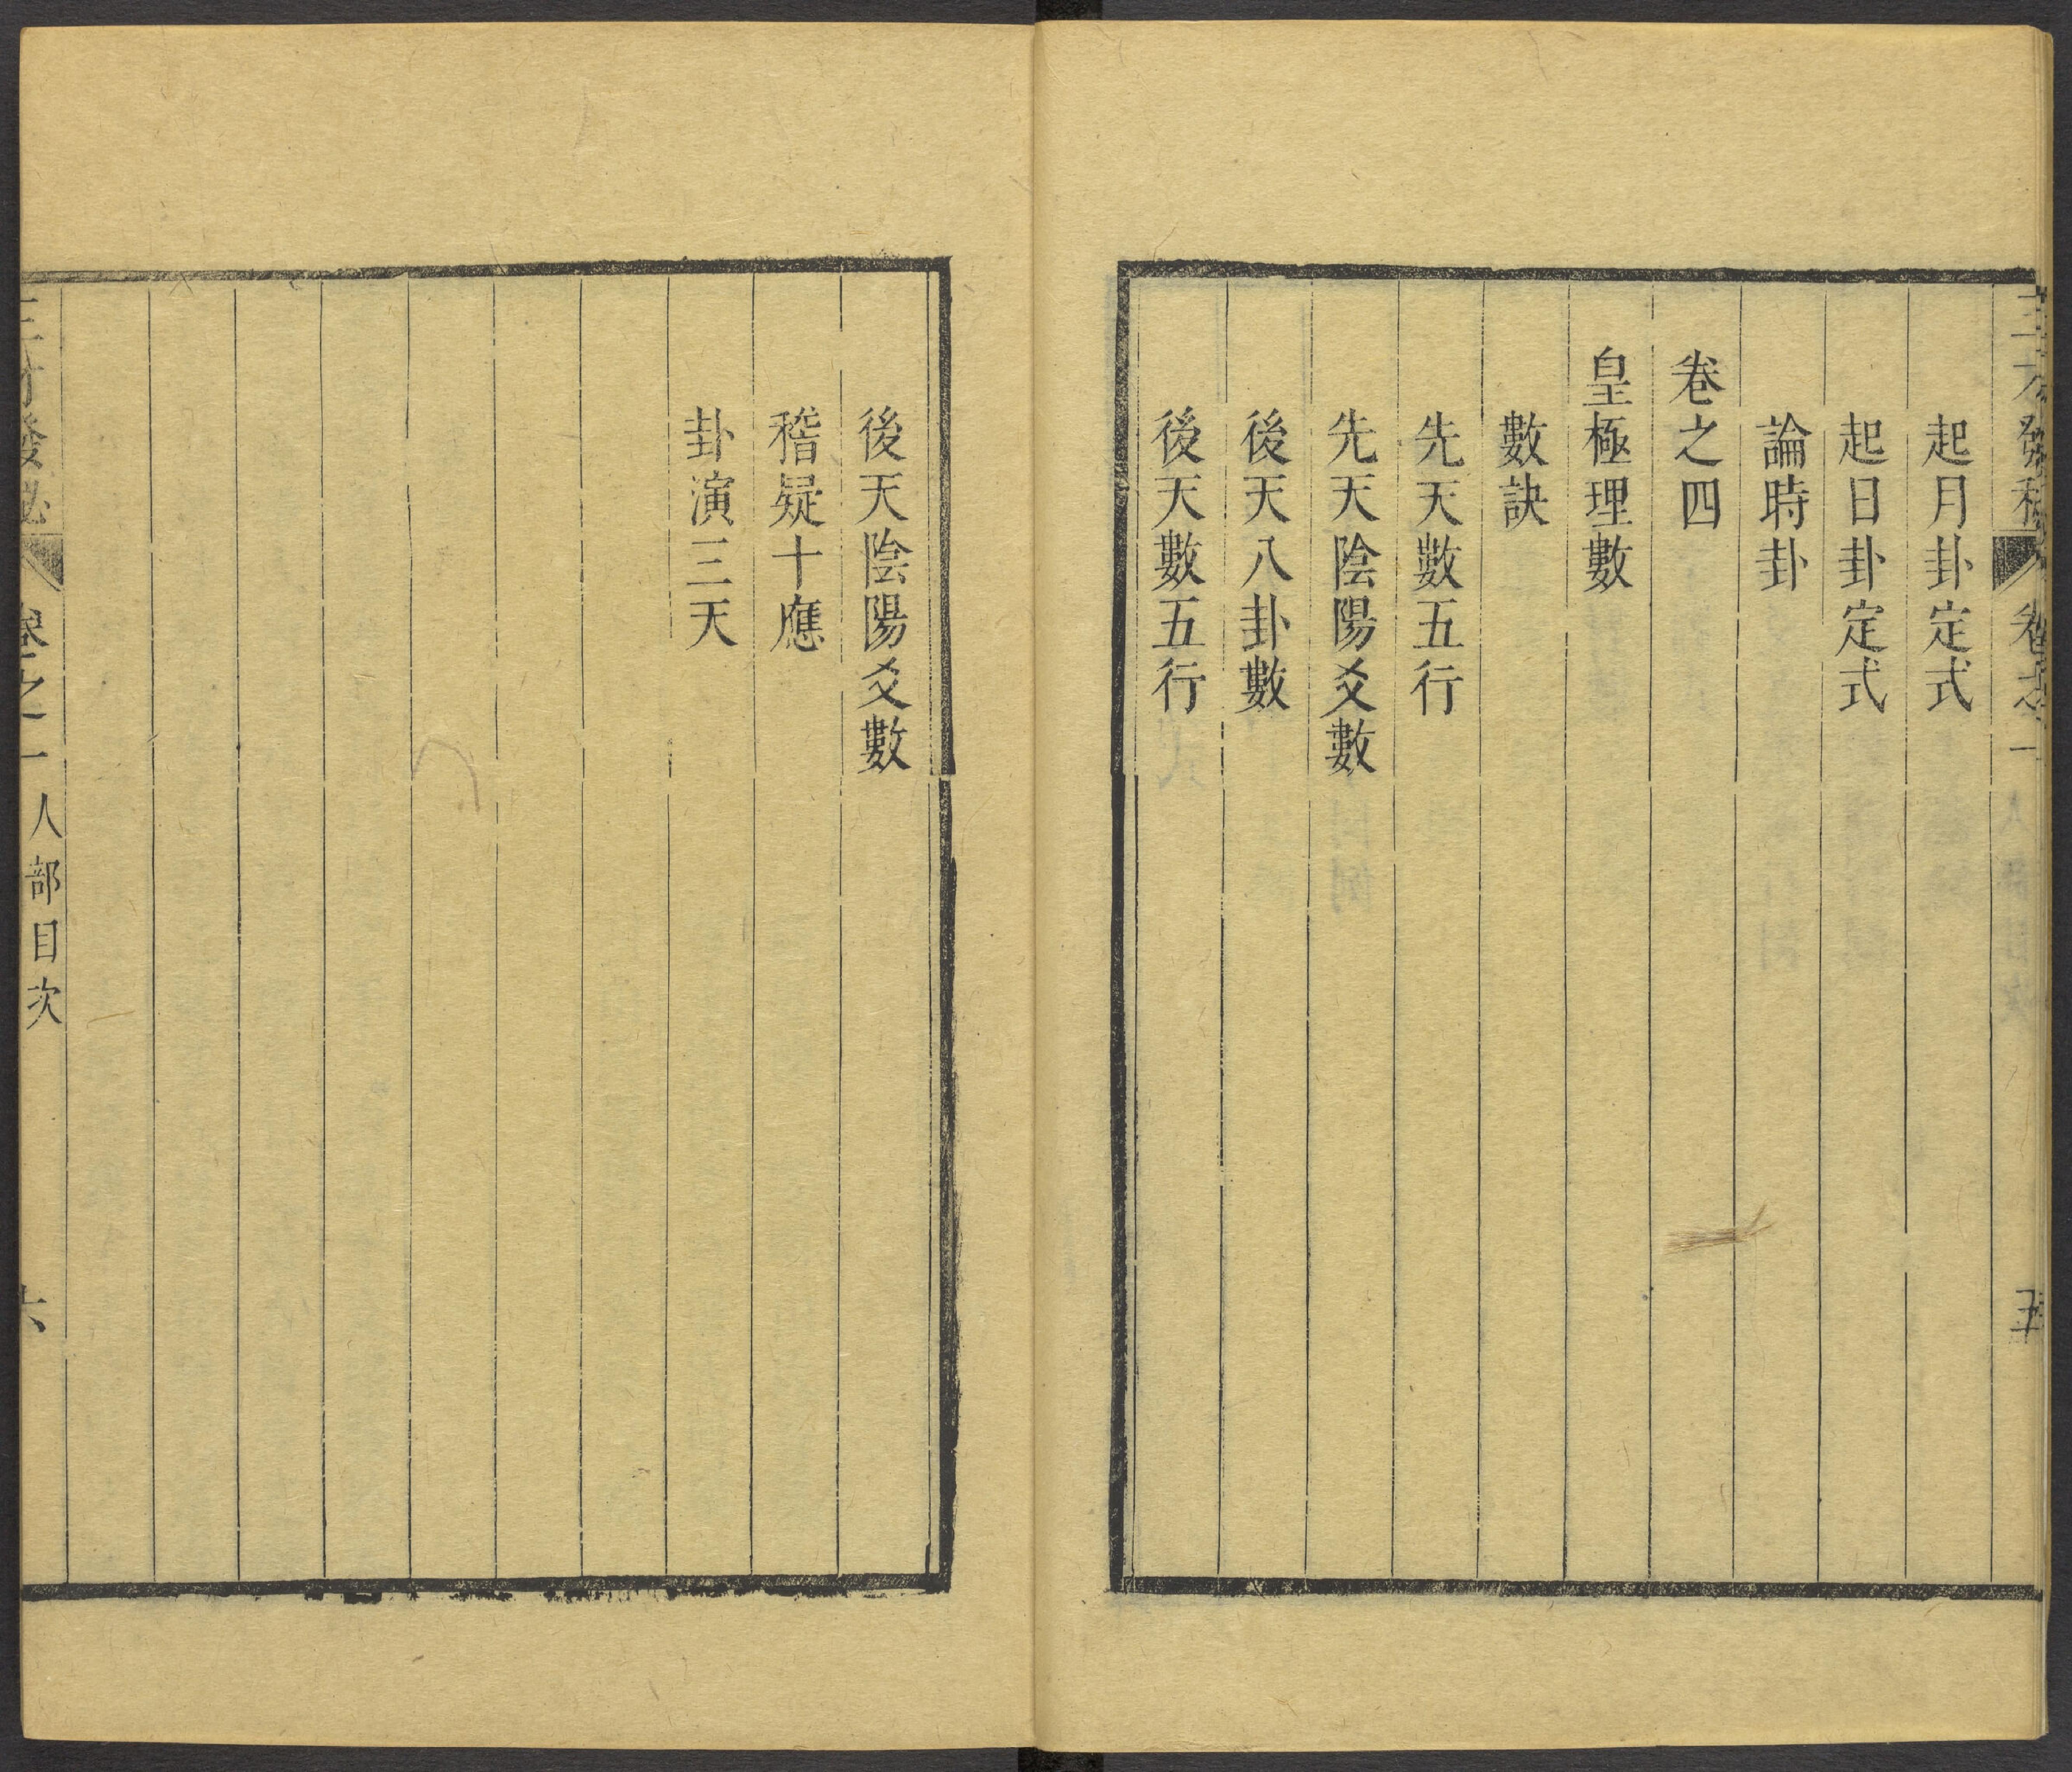 起月卦定式
起日卦定式
論時卦
卷之四
皇極理數
數訣
先天數五行
先天陰陽爻數
後天八卦數
後天數五行
後天陰陽爻數
稽疑十應
卦演三天
三才發秘
卷之一
人部目次
六